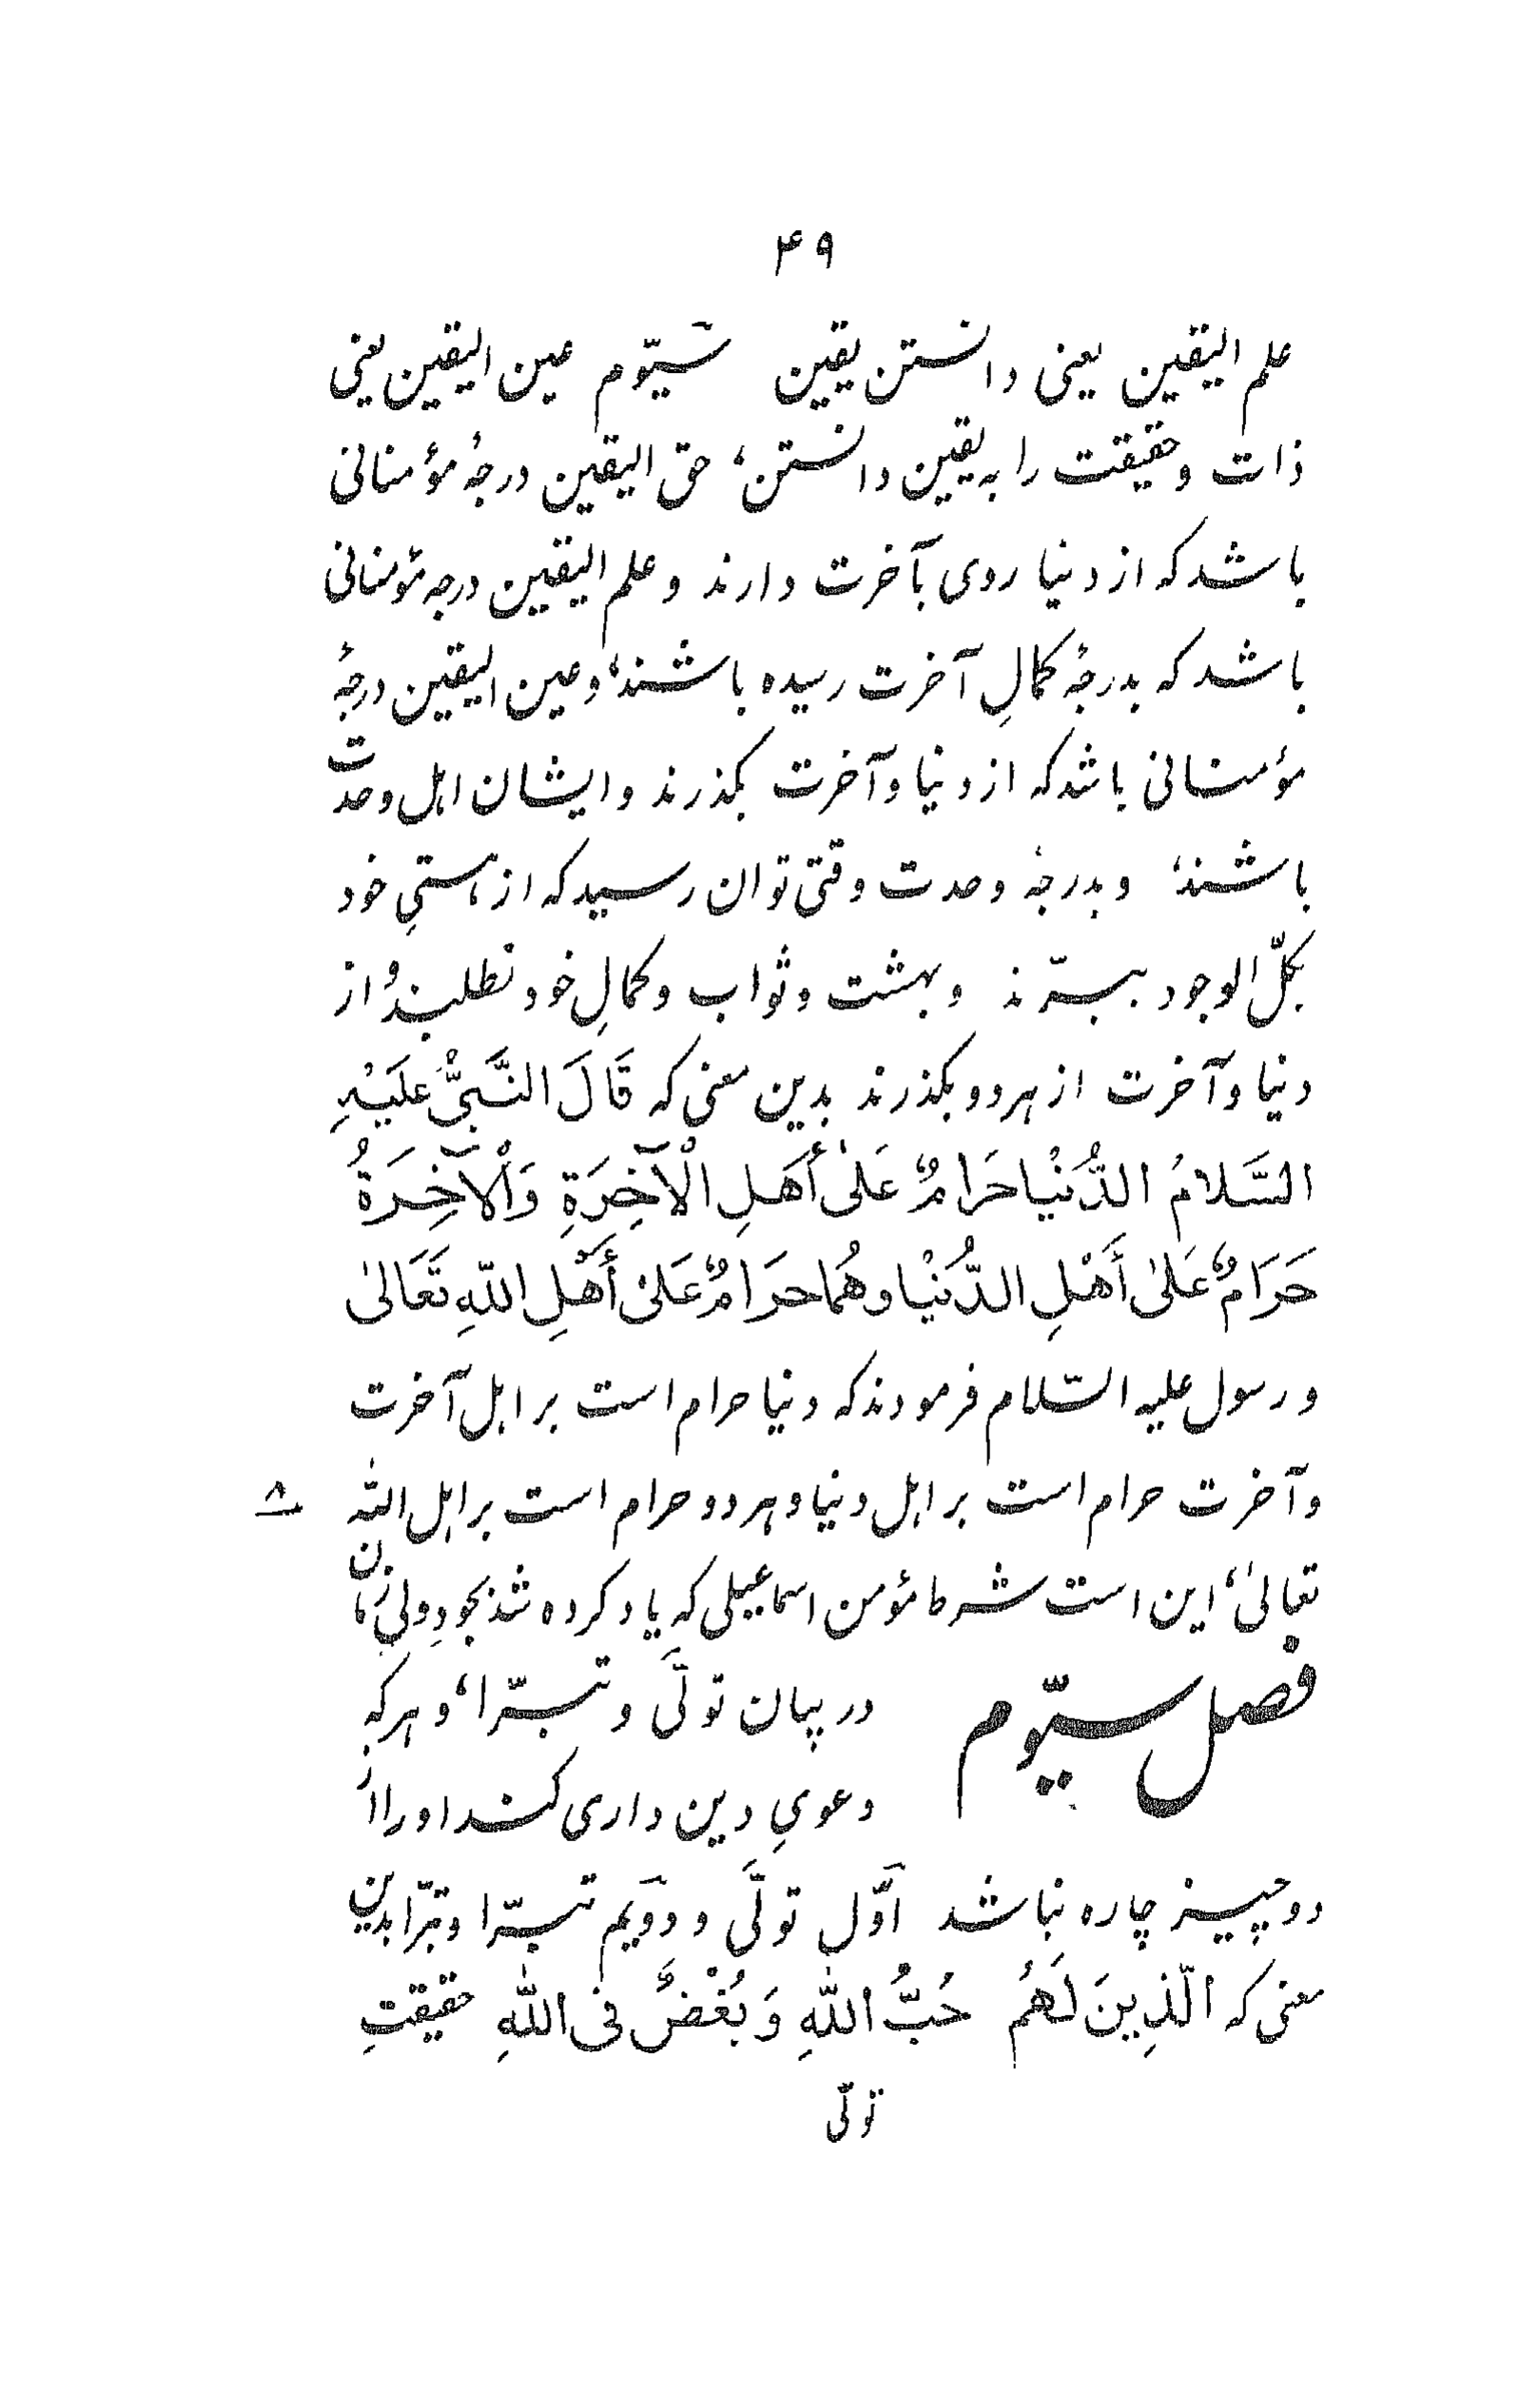 ۴۹
علم الیقین یعنی دانستن یقین سیّوم عین الیقین یعنی
ذات و حقیقت را به یقین دانستن، حق الیقین درجهٔ مؤمنانی
باشد که از دنیا روی بآخرت دارند و علم الیقین درجه مؤمنانی
باشد که بدرجهٔ کمالِ آخرت رسیده باشند، و عین الیقین درجهٔ
مؤمنانی باشد که از دنیا و آخرت بگذرند و ایشان اهل وحدت
باشند، و بدرجهٔ وحدت وقتی توان رسید که از هستیِ خود
بکلّ الوجود ببرّند و بهشت و ثواب و کمالِ خود نطلبند و از
دنیا و آخرت از هر دو بگذرند بدین معنی که قَالَ النَّبِیُّ عَلَیْهِ
السَّلامُ الدُّنْیا حَرَامٌ عَلیٰ أَهَلِ الْآخِرَةِ وَالْآخِرَةُ
حَرَامٌ عَلیٰ أَهْلِ الدُّنْیا وهُما حرَامٌ عَلیٰ أَهْلِ اللّهِ تَعَالیٰ
و رسول علیه السّلام فرمودند که دنیا حرام است بر اهل آخرت
و آخرت حرام است بر اهل دنیا و هر دو حرام است بر اهل اللّٰه
۸
تعالیٰ، این است شرط مؤمن اسماعیلی که یاد کرده شد بجودِ ولیِ زمان
فصل سیّوم در بیان تولَّی و تبرّا، و هر که
دعویِ دین داری کند او را از
دو چیز چاره نباشد اوّل تولَّی و دوّیم تبرّا و تبرّا بدین
معنی که الّذِینَ لَهُم حُبُّ اللّٰهِ وَ بُغْضٌ فی اللّٰهِ حقیقتِ
تولّی